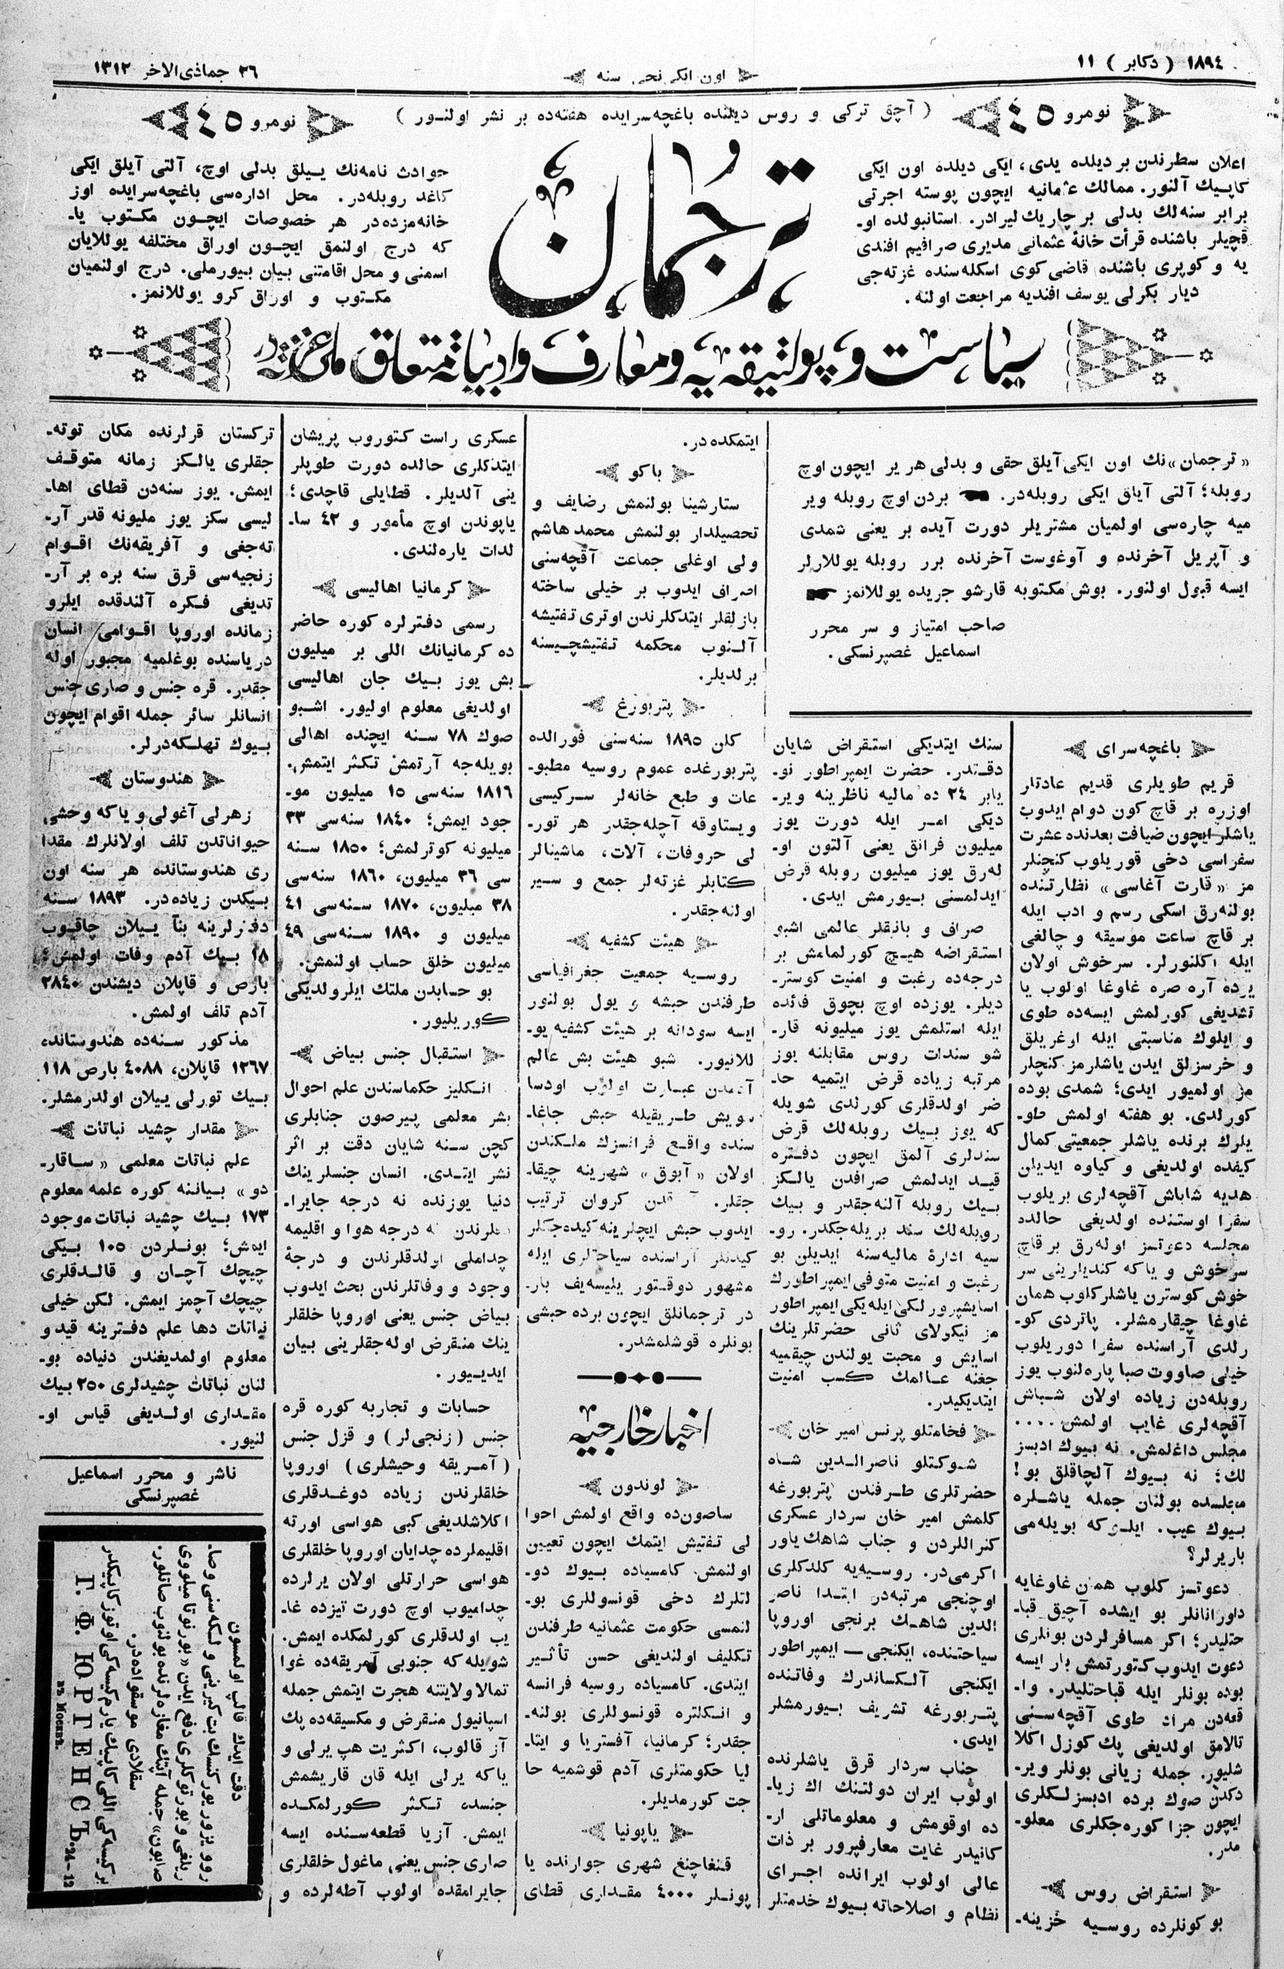 ١٨٩٤ ( دكابر ) ١١
اون ایكی نجی سنه
٢٦ جماذی الاخر ١٣١٢
نومرو ٤٥
( آچق تركی و روس دیلنده باغچه سرایده هفته‌ده بر نشر اولنور )
نومرو ٤٥
اعلان سطرندن بر دیلده یدی، ایكی دیلده اون ایكی
كاپیك آلنور. ممالك عثمانیه ایچون پوسته اجرتی
برابر سنه‌لك بدلی بر چاریك لیرادر. استانبولده او-
قچیلر باشنده قرأت خانۀ عثمانی مدیری صرافیم افندی
یه و كوپری باشنده قاضی كوی اسكله سنده غزته‌جی
دیار بكرلی یوسف افندیه مراجعت اولنه.
ترجمان
حوادث نامه‌نك ییلق بدلی اوچ، آلتی آیلق ایكی
كاغد روبله‌در. محل اداره‌سی باغچه سرایده اوز
خانه‌مزده‌در هر خصوصات ایچون مكتوب یا-
كه درج اولنمق ایچون اوراق مختلفه یوللایان
اسمنی و محل اقامتنی بیان بیورملی. درج اولنمیان
مكتوب و اوراق كرو یوللانمز.
سیاست و پولتیقه یه و معارف و ادبیاته متعلق ملی غزته در
«ترجمان» نك اون ایكی آیلق حقی و بدلی هر یر ایچون اوچ
روبله؛ آلتی آیلق ایكی روبله‌در. بردن اوچ روبله ویر
میه چاره‌سی اولمیان مشتریلر دورت آیده بر یعنی شمدی
و آپریل آخرنده و آوغوست آخرنده برر روبله یوللارلر
ایسه قبول اولنور. بوش مكتوبه قارشو جریده یوللانمز
صاحب امتیاز و سر محرر
اسماعیل غصپرنسكی.
باغچه سرای
قریم طویلری قدیم عادتلر
اوزره بر قاچ كون دوام ایدوب
یاشلر ایچون ضیافت بعدنده عشرت
سفراسی دخی قوریلوب كنچلر
مز «قارت آغاسی» نظارتنده
بولنه‌رق اسكی رسم و ادب ایله
بر قاچ ساعت موسیقه و چالغی
ایله اكلنورلر. سرخوش اولان
یرده آره صره غاوغا اولوب یا
تشدیغی كورلمش ایسه‌ده طوی
و ایلوك مناسبتی ایله اوغریلق
و خرسزلق ایدن یاشلرمز كنچلر
مز اولمیور ایدی؛ شمدی بوده
كورلدی. بو هفته اولمش طو-
یلرك برنده یاشلر جمعیتی كمال
كیفده اولدیغی و كیاوه ایدیلن
هدیه شاباش آقچه‌لری بریلوب
سفرا اوستنده اولدیغی حالده
مجلسه دعوتسز اوله‌رق بر قاچ
سرخوش و یاكه كندیلرینی سر
خوش كوسترن یاشلر كلوب همان
غاوغا چیقارمشلر. پاتردی كو-
رلدی آراسنده سفرا دوریلوب
خیلی صاووت صبا پاره‌لنوب یوز
روبله‌دن زیاده اولان شباش
آقچه‌لری غایب اولمش ....
مجلس داغلمش. نه بیوك ادبسز
لك؛ نه بیوك آلچاقلق بو!
مجلسده بولنان جمله یاشلره
بیوك عیب. ایلری كه بویله‌می
باریرلر؟
دعوتسز كلوب همان غاوغایه
داورانانلر بو ایشده آچیق قبا-
حتلیدر؛ اكر مسافرلردن بونلری
دعوت ایدوب كتورتمش بار ایسه
بوده بونلر ایله قباحتلیدر. وا-
قعه‌دن مراد طوی آقچه‌سنی
تالامق اولدیغی پك كوزل اكلا
شلیور. جمله زیانی بونلر ویر-
دكدن صوك برده ادبسزلكلری
ایچون جزا كوره‌جكلری معلو-
مدر.
استقراض روس
بو كونلرده روسیه خزینه-
سنك ایتدیكی استقراض شایان
دقتدر. حضرت ایمپراطور نو-
یابر ٢٤ ده مالیه ناظرینه ویر-
دیكی امر ایله دورت یوز
میلیون فرانق یعنی آلتون او-
له‌رق یوز میلیون روبله قرض
ایدلمسنی بیورمش ایدی.
صراف و بانقلر عالمی اشبو
استقراضه هیچ كورلمامش بر
درجه‌ده رغبت و امنیت كوستر-
دیلر. یوزده اوچ بچوق فائده
ایله استلمش یوز میلیونه قار-
شو سندات روس مقابلنه یوز
مرتبه زیاده قرض ایتمیه حا-
ضر اولدقلری كورلدی شویله
كه یوز بیك روبله‌لك قرض
سندلری آلمق ایچون دفتره
قید ایدلمش صرافدن یالكز
بیك روبله آلنه‌جقدر و بیك
روبله‌لك سند بریله‌جكدر. رو-
سیه ادارۀ مالیه‌سنه ایدیلن بو
رغبت و امنیت متوفی ایمپراطورك
آسایشپرورلكی ایله یكی ایمپراطور
مز نیكولای ثانی حضرتلرینك
آسایش و محبت یولندن چیقمیه
جغنه عالمك كسب امنیت
ایتدیكیدر.
فخامتلو پرنس امیر خان
شوكتلو ناصرالدین شاه
حضرتلری طرفندن پتربورغه
كلمش امیر خان سردار عسكری
كنراللردن و جناب شاهك یاور
اكرمی‌در. روسیه‌یه كلدكلری
اوچنجی مرتبه‌در. ابتدا ناصر
الدین شاهك برنجی اوروپا
سیاحتنده، ایكنجی — ایمپراطور
ایكنجی آلكساندرك وفاتنده
پتربورغه تشریف بیورمشلر
ایدی.
جناب سردار قرق یاشلرنده
اولوب ایران دولتنك اك زیا-
ده اوقومش و معلوماتلی ار-
كانیدر غایت معارفپرور بر ذات
عالی اولوب ایرانده اجرای
نظام و اصلاحاته بیوك خدمتلر
ایتمكده‌در.
باكو
ستارشینا بولنمش رضایف و
تحصیلدار بولنمش محمد هاشم
ولی اوغلی جماعت آقچه‌سنی
اصراف ایدوب بر خیلی ساخته
بازلقلر ایتدكلرندن اوتری تفتیشه
آلنوب محكمه تفتیشچیسنه
برلدیلر.
پتربورغ
كلن ١٨٩٥ سنه‌سنی فورالده
پتربورغده عموم روسیه مطبو-
عات و طبع خانه‌لر سركیسی
ویستاوقه آچله‌جقدر هر تور-
لی حروفات، آلات، ماشینالر
كتابلر غزته‌لر جمع و سیر
اولنه‌جقدر.
هیئت كشفیه
روسیه جمعیت جغرافیاسی
طرفندن حبشه و یول بولنور
ایسه سودانه بر هیئت كشفیه یو-
للانیور. شبو هیئت بش عالم
آدمدن عبارت اولوب اودسا
سویش طریقیله حبش جاغا-
سنده واقع فرانسزك ملكندن
اولان «آبوق» شهرینه چیقا-
جقلر. آندن كروان ترتیب
ایدوب حبش ایچلرینه كیده‌جكلر
كیدنلر آراسنده سیاحتلری ایله
مشهور دوقتور یلیسه‌یف بار-
در ترجمانلق ایچون برده حبشی
بونلره قوشلمشدر.
اخبار خارجیه
لوندون
ساصون‌ده واقع اولمش احوا
لی تفتیش ایتمك ایچون تعیین
اولنمش كامسیاده بیوك دو-
لتلرك دخی قونسوللری بو-
لنمسی حكومت عثمانیه طرفندن
تكلیف اولندیغی حسن تأثیر
ایتدی. كامسیاده روسیه فرانسه
و انكلتره قونسوللری بولنه-
جقدر؛ كرمانیا، آفستریا و ایتا-
لیا حكومتلری آدم قوشمیه حا
جت كورمدیلر.
یاپونیا
قنغاچنغ شهری جوارنده یا
پونلر ٤٠٠٠ مقداری قطای
عسكری راست كتوروب پریشان
ایتدكلری حالده دورت طوپلر
ینی آلدیلر. قطایلی قاچدی؛
یاپوندن اوچ مأمور و ٤٢ سا-
لدات یاره‌لندی.
كرمانیا اهالیسی
رسمی دفترلره كوره حاضر
ده كرمانیانك اللی بر میلیون
بش یوز بیك جان اهالیسی
اولدیغی معلوم اولیور. اشبو
صوك ٧٨ سنه ایچنده اهالی
بویله‌جه آرتمش تكثر ایتمش.
١٨١٦ سنه‌سی ١٥ میلیون مو-
جود ایمش؛ ١٨٤٠ سنه‌سی ٣٣
میلیونه كوترلمش؛ ١٨٥٠ سنه
سی ٣٦ میلیون، ١٨٦٠ سنه‌سی
٣٨ میلیون، ١٨٧٠ سنه‌سی ٤١
میلیون و ١٨٩٠ سنه‌سی ٤٩
میلیون خلق حساب اولنمش.
بو حسابدن ملتك ایلرولدیكی
كوریلیور.
استقبال جنس بیاض
انكلیز حكماسندن علم احوال
بشر معلمی پیرصون جنابلری
كچن سنه شایان دقت بر اثر
نشر ایتدی. انسان جنسلرینك
دنیا یوزنده نه درجه جایرا-
نلرندن نه درجه هوا و اقلیمه
چداملی اولدقلرندن و درجۀ
وجود و وفاتلرندن بحث ایدوب
بیاض جنس یعنی اوروپا خلقلر
ینك منقرض اوله‌جقلرینی بیان
ایدیور.
حسابات و تجاربه كوره قره
جنس (زنجی‌لر) و قزل جنس
(آمریقه وحیشلری) اوروپا
خلقلرندن زیاده دوغدقلری
اكلاشلدیغی كبی هواسی اورته
اقلیملرده چدایان اوروپا خلقلری
هواسی حرارتلی اولان یرلرده
چدامیوب اوچ دورت تیزده غا-
یب اولدقلری كورلمكده ایمش.
شویله كه جنوبی آمریقه‌ده غوا
تمالا ولایتنه هجرت ایتمش جمله
اسپانیول منقرض و مكسیقه‌ده پك
آز قالوب، اكثریت هپ یرلی و
یاكه یرلی ایله قان قاریشمش
جنسده تكثر كورلمكده
ایمش. آزیا قطعه‌سنده ایسه
صاری جنس یعنی ماغول خلقلری
جایرامقده اولوب آطه‌لرده و
تركستان قرلرنده مكان توته-
جقلری یالكز زمانه متوقف
ایمش. یوز سنه‌دن قطای اها-
لیسی سكز یوز ملیونه قدر آر-
ته‌جغی و آفریقه‌نك اقوام
زنجیه‌سی قرق سنه بره بر آر-
تدیغی فكره آلندقده ایلرو
زمانده اوروپا اقوامی انسان
دریاسنده بوغلمیه مجبور اوله
جقدر. قره جنس و صاری جنس
انسانلر سائر جمله اقوام ایچون
بیوك تهلكه‌درلر.
هندوستان
زهرلی آغولی و یاكه وحشی
حیواناتدن تلف اولانلرك مقدا
ری هندوستانده هر سنه اون
بیكدن زیاده‌در. ١٨٩٣ سنه
دفترلرینه بنآ ییلان چاقوب
١٨ بیك آدم وفات اولمش؛
بارص و قاپلان دیشندن ٢٨٤٠
آدم تلف اولمش.
مذكور سنه‌ده هندوستانده
١٢٦٧ قاپلان، ٤٠٨٨ بارص ١١٨
بیك تورلی ییلان اولدرمشلر.
مقدار چشید نباتات
علم نباتات معلمی «ساقار-
دو» بیاننه كوره علمه معلوم
١٧٣ بیك چشید نباتات موجود
ایمش؛ بونلردن ١٠٥ بیكی
چیچك آچان و قالدقلری
چیچك آچمز ایمش. لكن خیلی
نباتات دها علم دفترینه قید و
معلوم اولمدیغندن دنیاده بو-
لنان نباتات چشیدلری ٢٥٠ بیك
مقداری اولدیغی قیاس او-
لنیور.
ناشر و محرر اسماعیل
غصپرنسكی
دقت ایدك قالپ اولمسون
روو یزور یورگنسك بت كیرینی و لكه‌سنی و صا-
ریلغی و بورتوكلری دفع ایدن «بورنو تا میلووی
صابون» جمله آپتك مغازه‌لرنده بولنوب صاتلور.
بر كیسه‌كی اللی كاپیك یارم كیسه‌كی اوتوز كاپیكدر
سقلادی موسقواده‌در.
Г. Ф. ЮРГЕНСЪ.
въ Москвѣ.
24—12